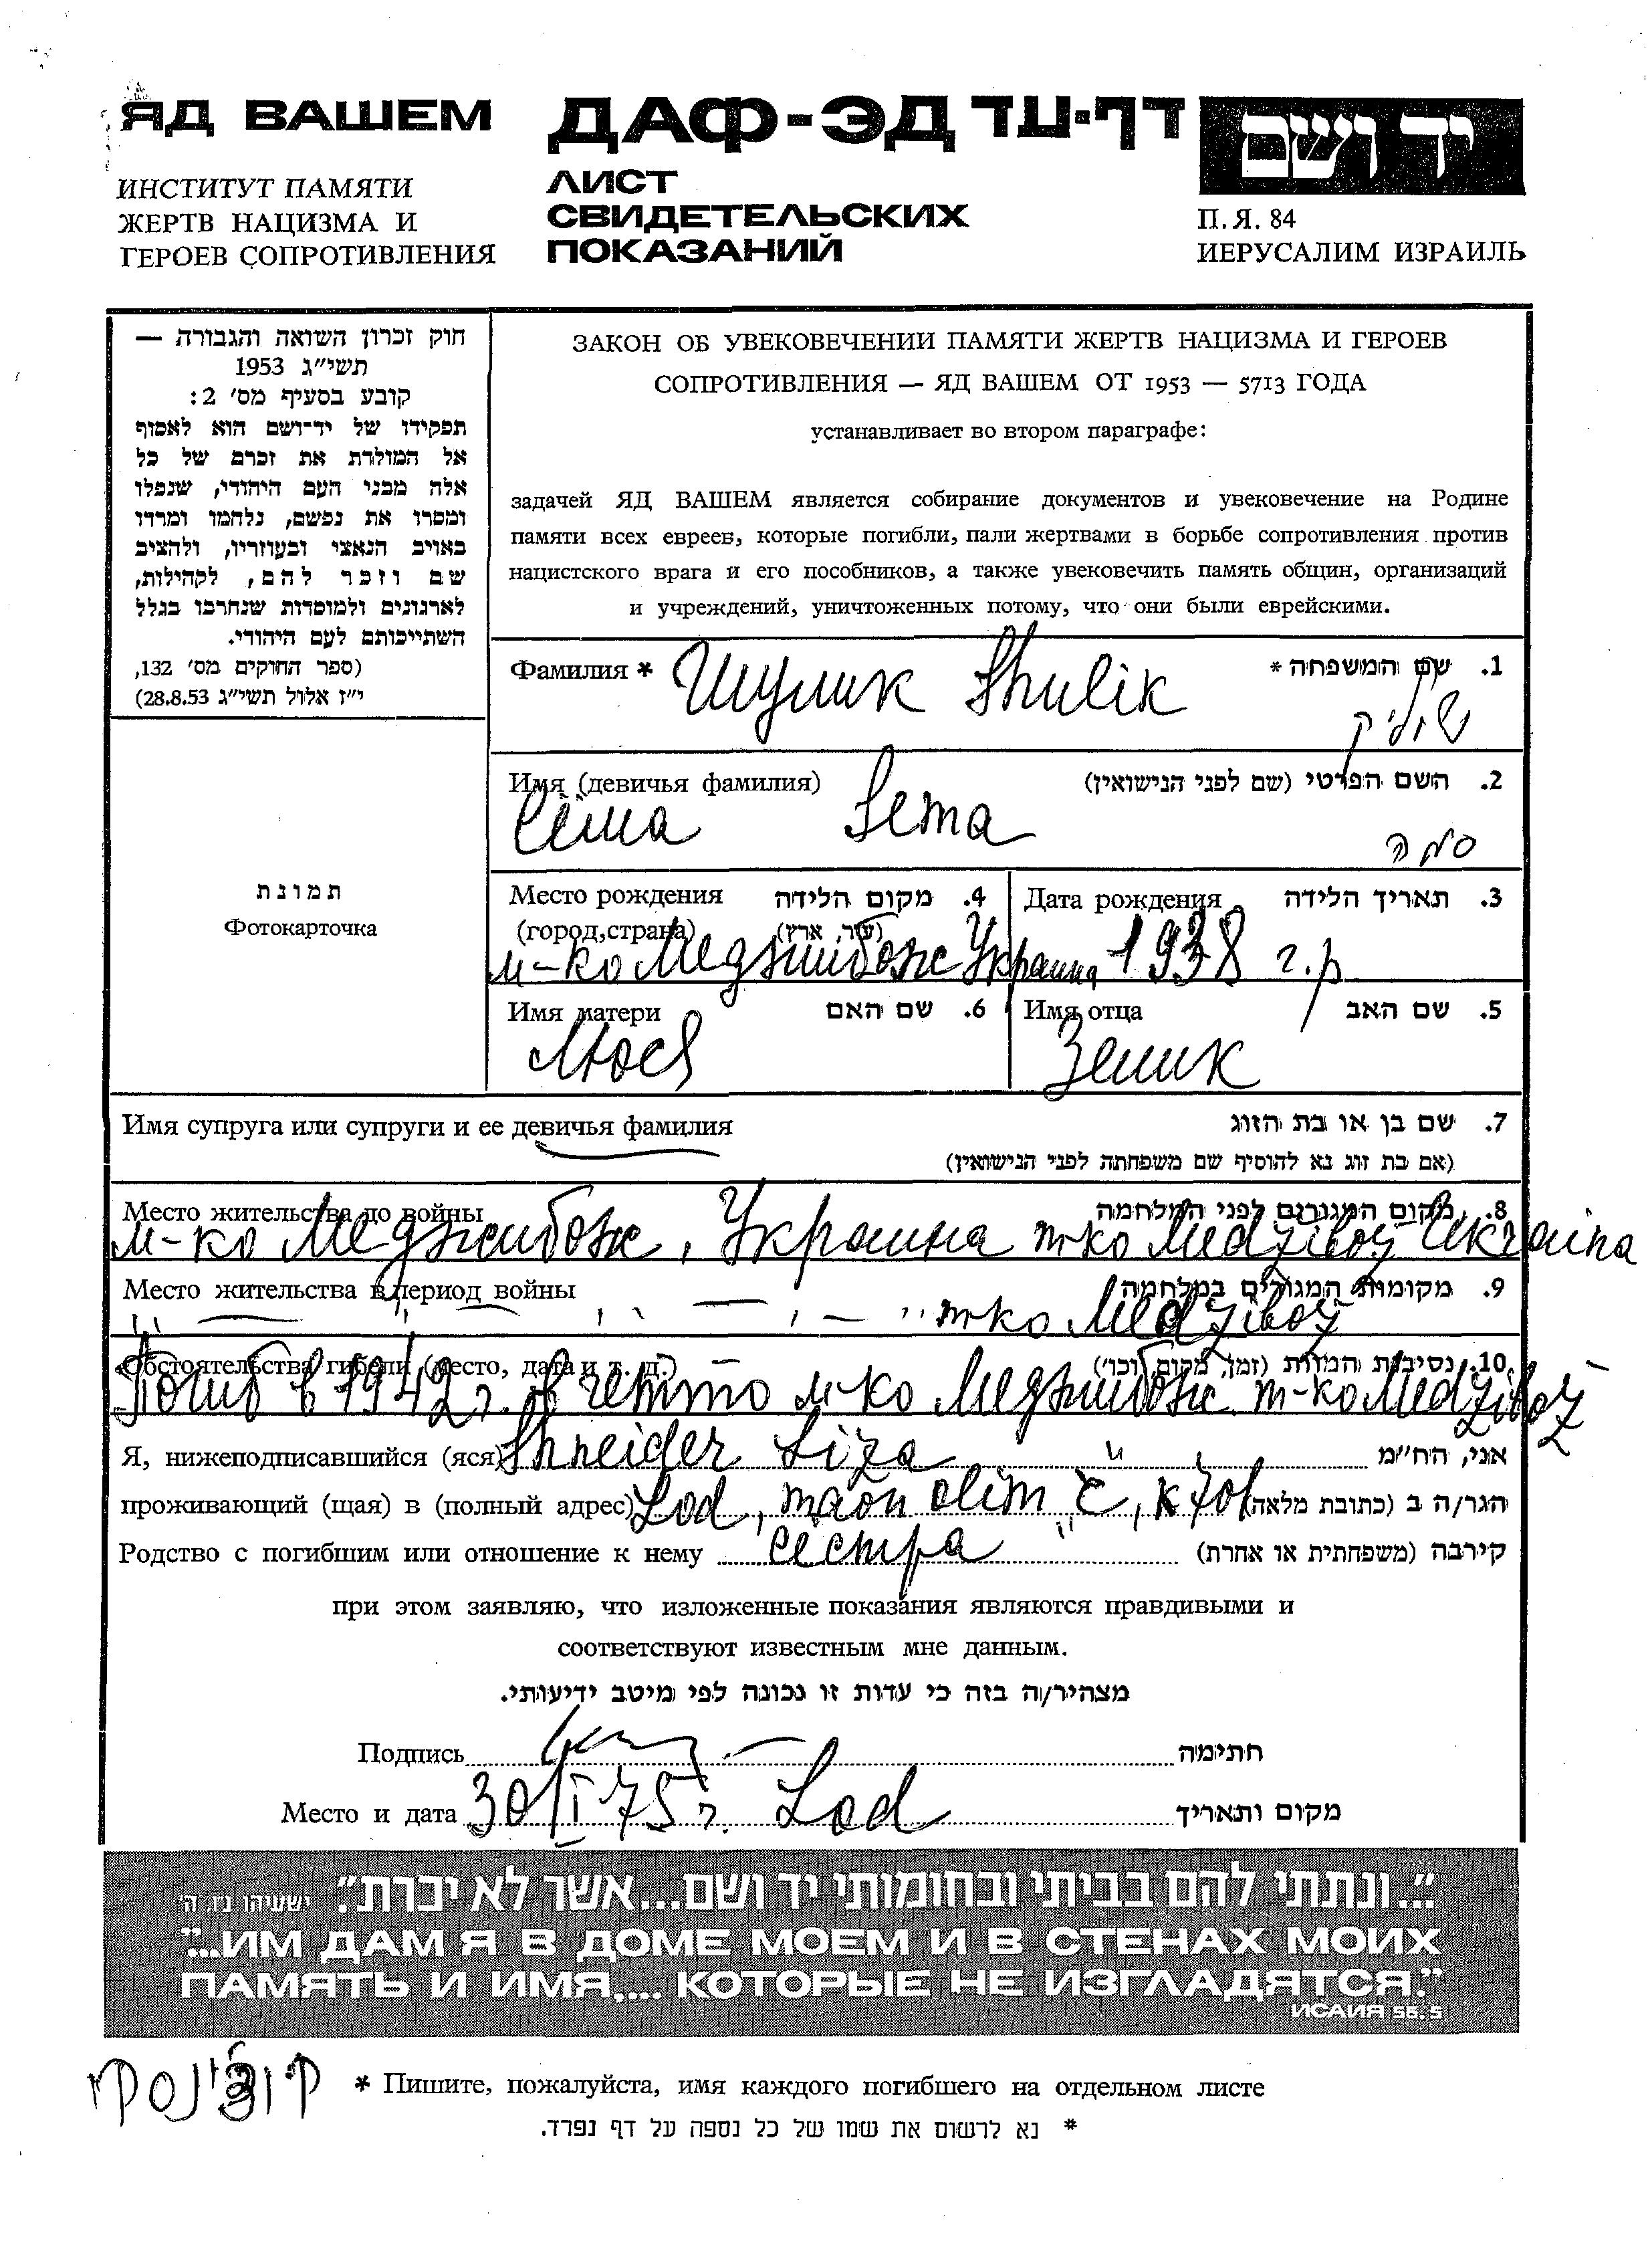 ЯД ВАШЕМ
ИНСТИТУТ ПАМЯТИ
ЖЕРТВ НАЦИЗМА И
ГЕРОЕВ СОПРОТИВЛЕНИЯ
ДАФ-ЭД דף-עד
ЛИСТ
СВИДЕТЕЛЬСКИХ
ПОКАЗАНИЙ
יד ושם
П.Я. 84
ИЕРУСАЛИМ ИЗРАИЛЬ
חוק זכרון השואה והגבורה —
תשי״ג 1953
קובע בסעיף מס׳ 2:
תפקידו של יד־ושם הוא לאסוף
אל המולדת את זכרם של כל
אלה מבני העם היהודי, שנפלו
ומסרו את נפשם, נלחמו ומרדו
באויב הנאצי ובעוזריו, ולהציב
שם וזכר להם, לקהילות,
לארגונים ולמוסדות שנחרבו בגלל
השתייכותם לעם היהודי.
(ספר החוקים מס׳ 132,
י״ז אלול תשי״ג 28.8.53)
ЗАКОН ОБ УВЕКОВЕЧЕНИИ ПАМЯТИ ЖЕРТВ НАЦИЗМА И ГЕРОЕВ
СОПРОТИВЛЕНИЯ — ЯД ВАШЕМ ОТ 1953 — 5713 ГОДА
устанавливает во втором параграфе:
задачей ЯД ВАШЕМ является собирание документов и увековечение на Родине
памяти всех евреев, которые погибли, пали жертвами в борьбе сопротивления против
нацистского врага и его пособников, а также увековечить память общин, организаций
и учреждений, уничтоженных потому, что они были еврейскими.
Фамилия * Шулик Shulik 1. שם המשפחה *
שוליק
Имя (девичья фамилия) 2. השם הפרטי (שם לפני הנישואין)
Сёма Sema סמה
תמונת
Фотокарточка
Место рождения 4. מקום הלידה
(город,страна) (עיר, ארץ)
м-ко Меджибож Украина
Дата рождения 3. תאריך הלידה
1938 г.р
Имя матери 6. שם האם
Люся
Имя отца 5. שם האב
Зелик
Имя супруга или супруги и ее девичья фамилия 7. שם בן או בת הזוג
(אם בת זוג נא להוסיף שם משפחתה לפני הנישואין)
Место жительства до войны 8. מקום המגורים לפני המלחמה
м-ко Меджибож, Украина m-ko Medziboz Ukraina
Место жительства в период войны 9. מקומות המגורים במלחמה
m-ko Medziboz
Обстоятельства гибели (место, дата и т. д.) 10. נסיבות המות (זמן, מקום וכו׳)
Погиб в 1942 г. в гетто м-ко Меджибож m-ko Medziboz
Я, нижеподписавшийся (яся) Shneider Liza אני, הח״מ
проживающий (щая) в (полный адрес) Lod, maon olim "C", k 701 הגר/ה ב (כתובת מלאה)
Родство с погибшим или отношение к нему сестра קירבה (משפחתית או אחרת)
при этом заявляю, что изложенные показания являются правдивыми и
соответствуют известным мне данным.
מצהיר/ה בזה כי עדות זו נכונה לפי מיטב ידיעותי.
Подпись חתימה
Место и дата 30/I 75 г. Lod מקום ותאריך
״...ונתתי להם בביתי ובחומותי יד ושם...אשר לא יכרת״. ישעיהו נ״ו ה׳
"...ИМ ДАМ Я В ДОМЕ МОЕМ И В СТЕНАХ МОИХ
ПАМЯТЬ И ИМЯ,... КОТОРЫЕ НЕ ИЗГЛАДЯТСЯ."
ИСАИЯ 56. 5
* Пишите, пожалуйста, имя каждого погибшего на отдельном листе
* נא לרשום את שמו של כל נספה על דף נפרד.